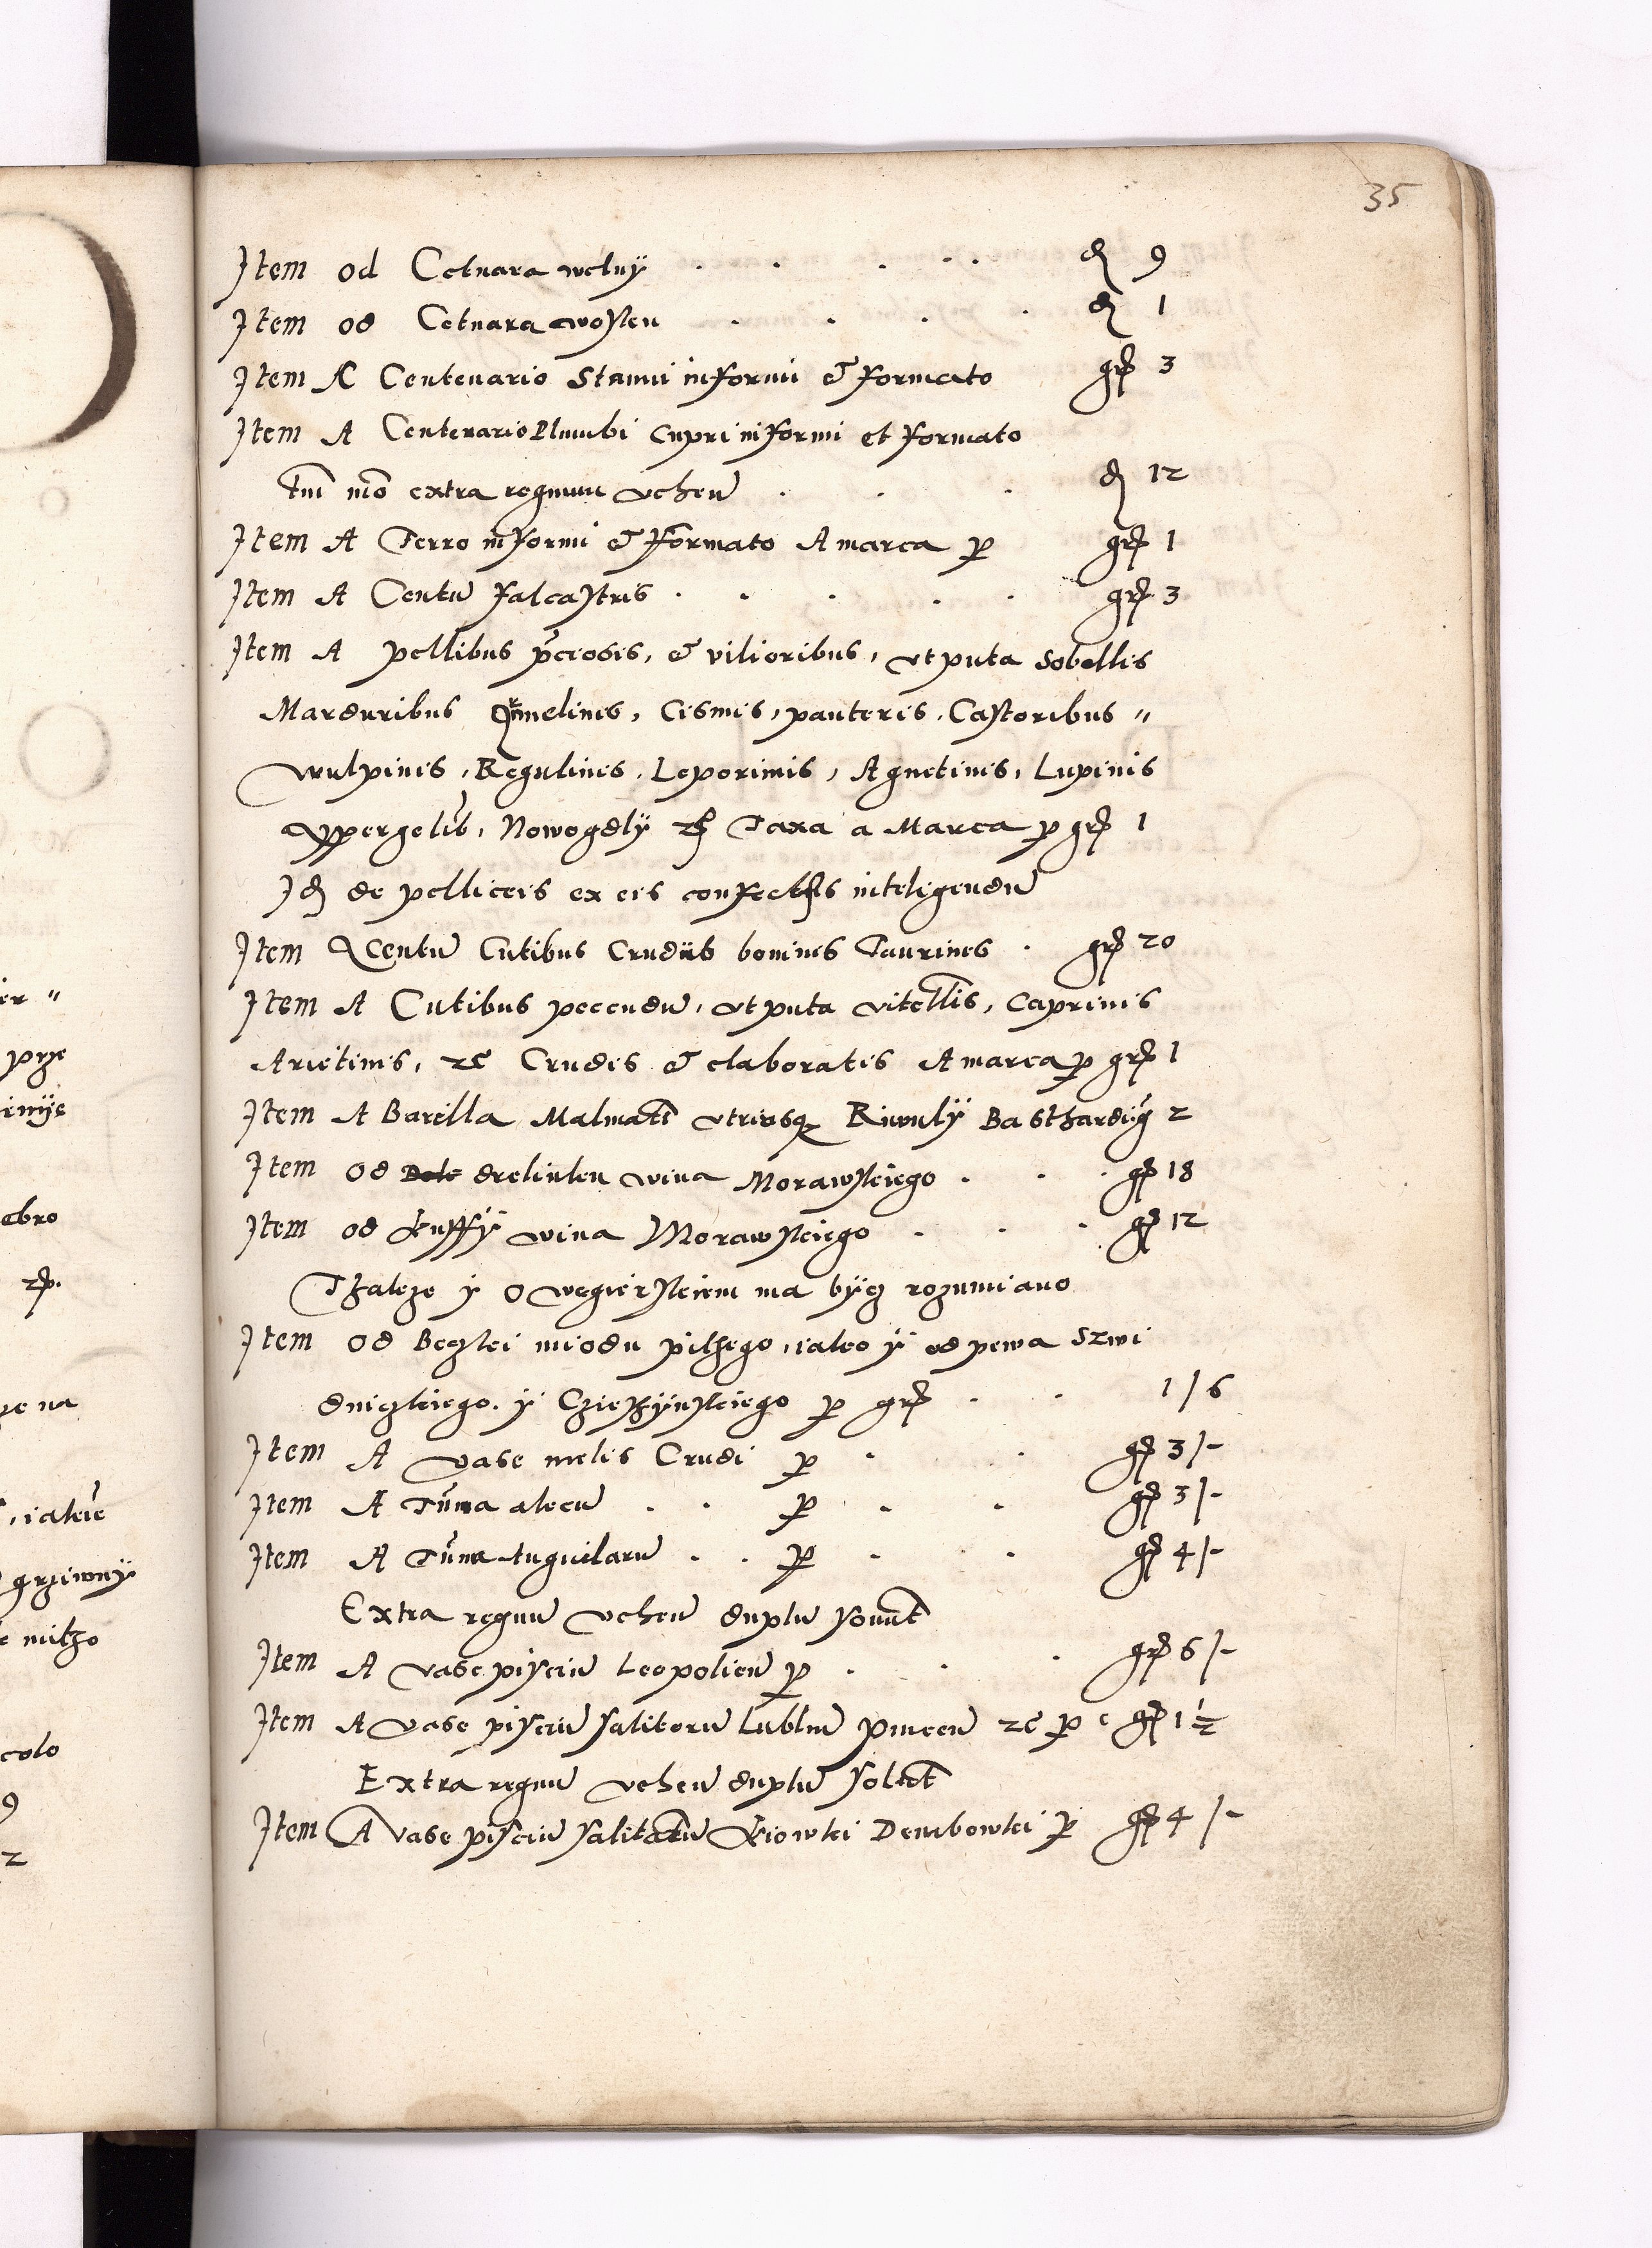 35
Item od Cetnara welny . . . . . đ 9
Item od Cetnara wosku . . . . đ 1
Item A Centenario Stanni informi et formato gr 3
Item A Centenario Plumbi cupri informi et formato
tm̄ mō extra regnum vehen̄ . . . đ 12
Item A Ferro informi et formato A marca p gr 1
Item A Centū falcastris . . . . . gr 3
Item A pellibus p̄ciosis, et vilioribus, ut puta Sobellis
Marduribus Armelinis, Cismis, panteris, Castoribus "
wulpinis, Regulinis, Leporinis, Agnetinis, Lupinis
Nowogrdly Taxa a Marca p gr 1
Id de pelliceis ex eis confectis inteligendū
Item A Centū Cutibus Crudis bouinis Taurinis . gr 20
Item A Cutibus pecudū, ut puta vitellis, Caprinis
Arietinis, etc Crudis et elaboratis A marca p gr 1
Item A Barilla Malmatī utriusq Riwuly Basthardi g 2
Item od drelinku wina Morawskiego . . . gr 18
Item od kuffy wina Morawskiego . . . gr 12
Thakze y o wegierskiem ma bycz rozumiano
Item od Beczki miodu pithego, iako y od pewa Szwi
dniczkiego. y Czieszynskiego p gr . . 1/6
Item A vase melis Crudi p . . gr 3/-
Item A Tūna alecū . . p . . gr 3/-
Item A Tūna Anguilarū . . p . . gr 4/-
Extra regnū vehen̄ duplū soluūt
Item A vase pisciū Leopolien̄ p . . . gr 6/-
Item A vase pisciū salitorū Lublin̄ pincen̄ etc p gr 1½
Extra regnū vehen̄ duplū solūt
Item A vase pisciū salitorū kiowki Dembowki p gr 4/-